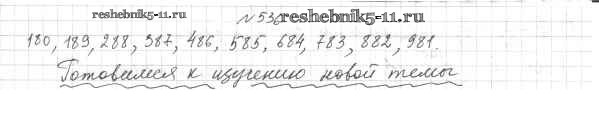 reshebnik5-11.ru
№530 reshebnik5-11.ru
180, 189, 288, 387, 486, 585, 684, 783, 882, 981.
Готовимся к изучению новой темы